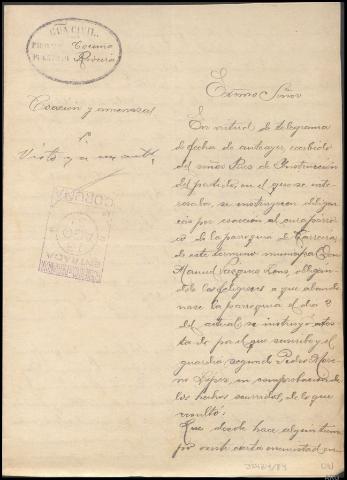 GUA CIVIL
PROV Coruña
PUESTO Riveira
Coacción y amenazas
Excmo Señor
En virtud de telegrama
de fecha de anteayer, recibido
del señor Juez de Instrucción
del partido, en el que se inte-
resaba, se instruyesen diligen-
cias por coacción al cura párro-
co de la parroquia de Carreira
de este termino municipal Don
Manuel Vazquez Lens, obligan-
dole los feligreses a que abando-
nase la parroquia el dia 8
del actual, se instruyó ates-
tado por el que suscribe y el
guardia segundo Pedro More-
no López, en comprobación de
los hechos ocurridos, de lo que
resultó:
Que desde hace algun tiempo
por existir cierta enemistad
CORUÑA
AGO
ENTRADA